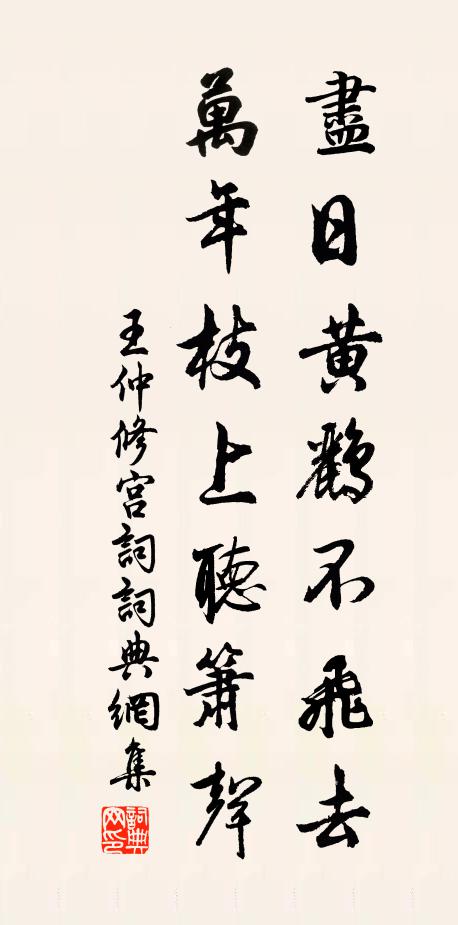 盡日黃鸝不飛去
萬年枝上聽簫聲
王仲修宮詞詞典網集
詞典網印